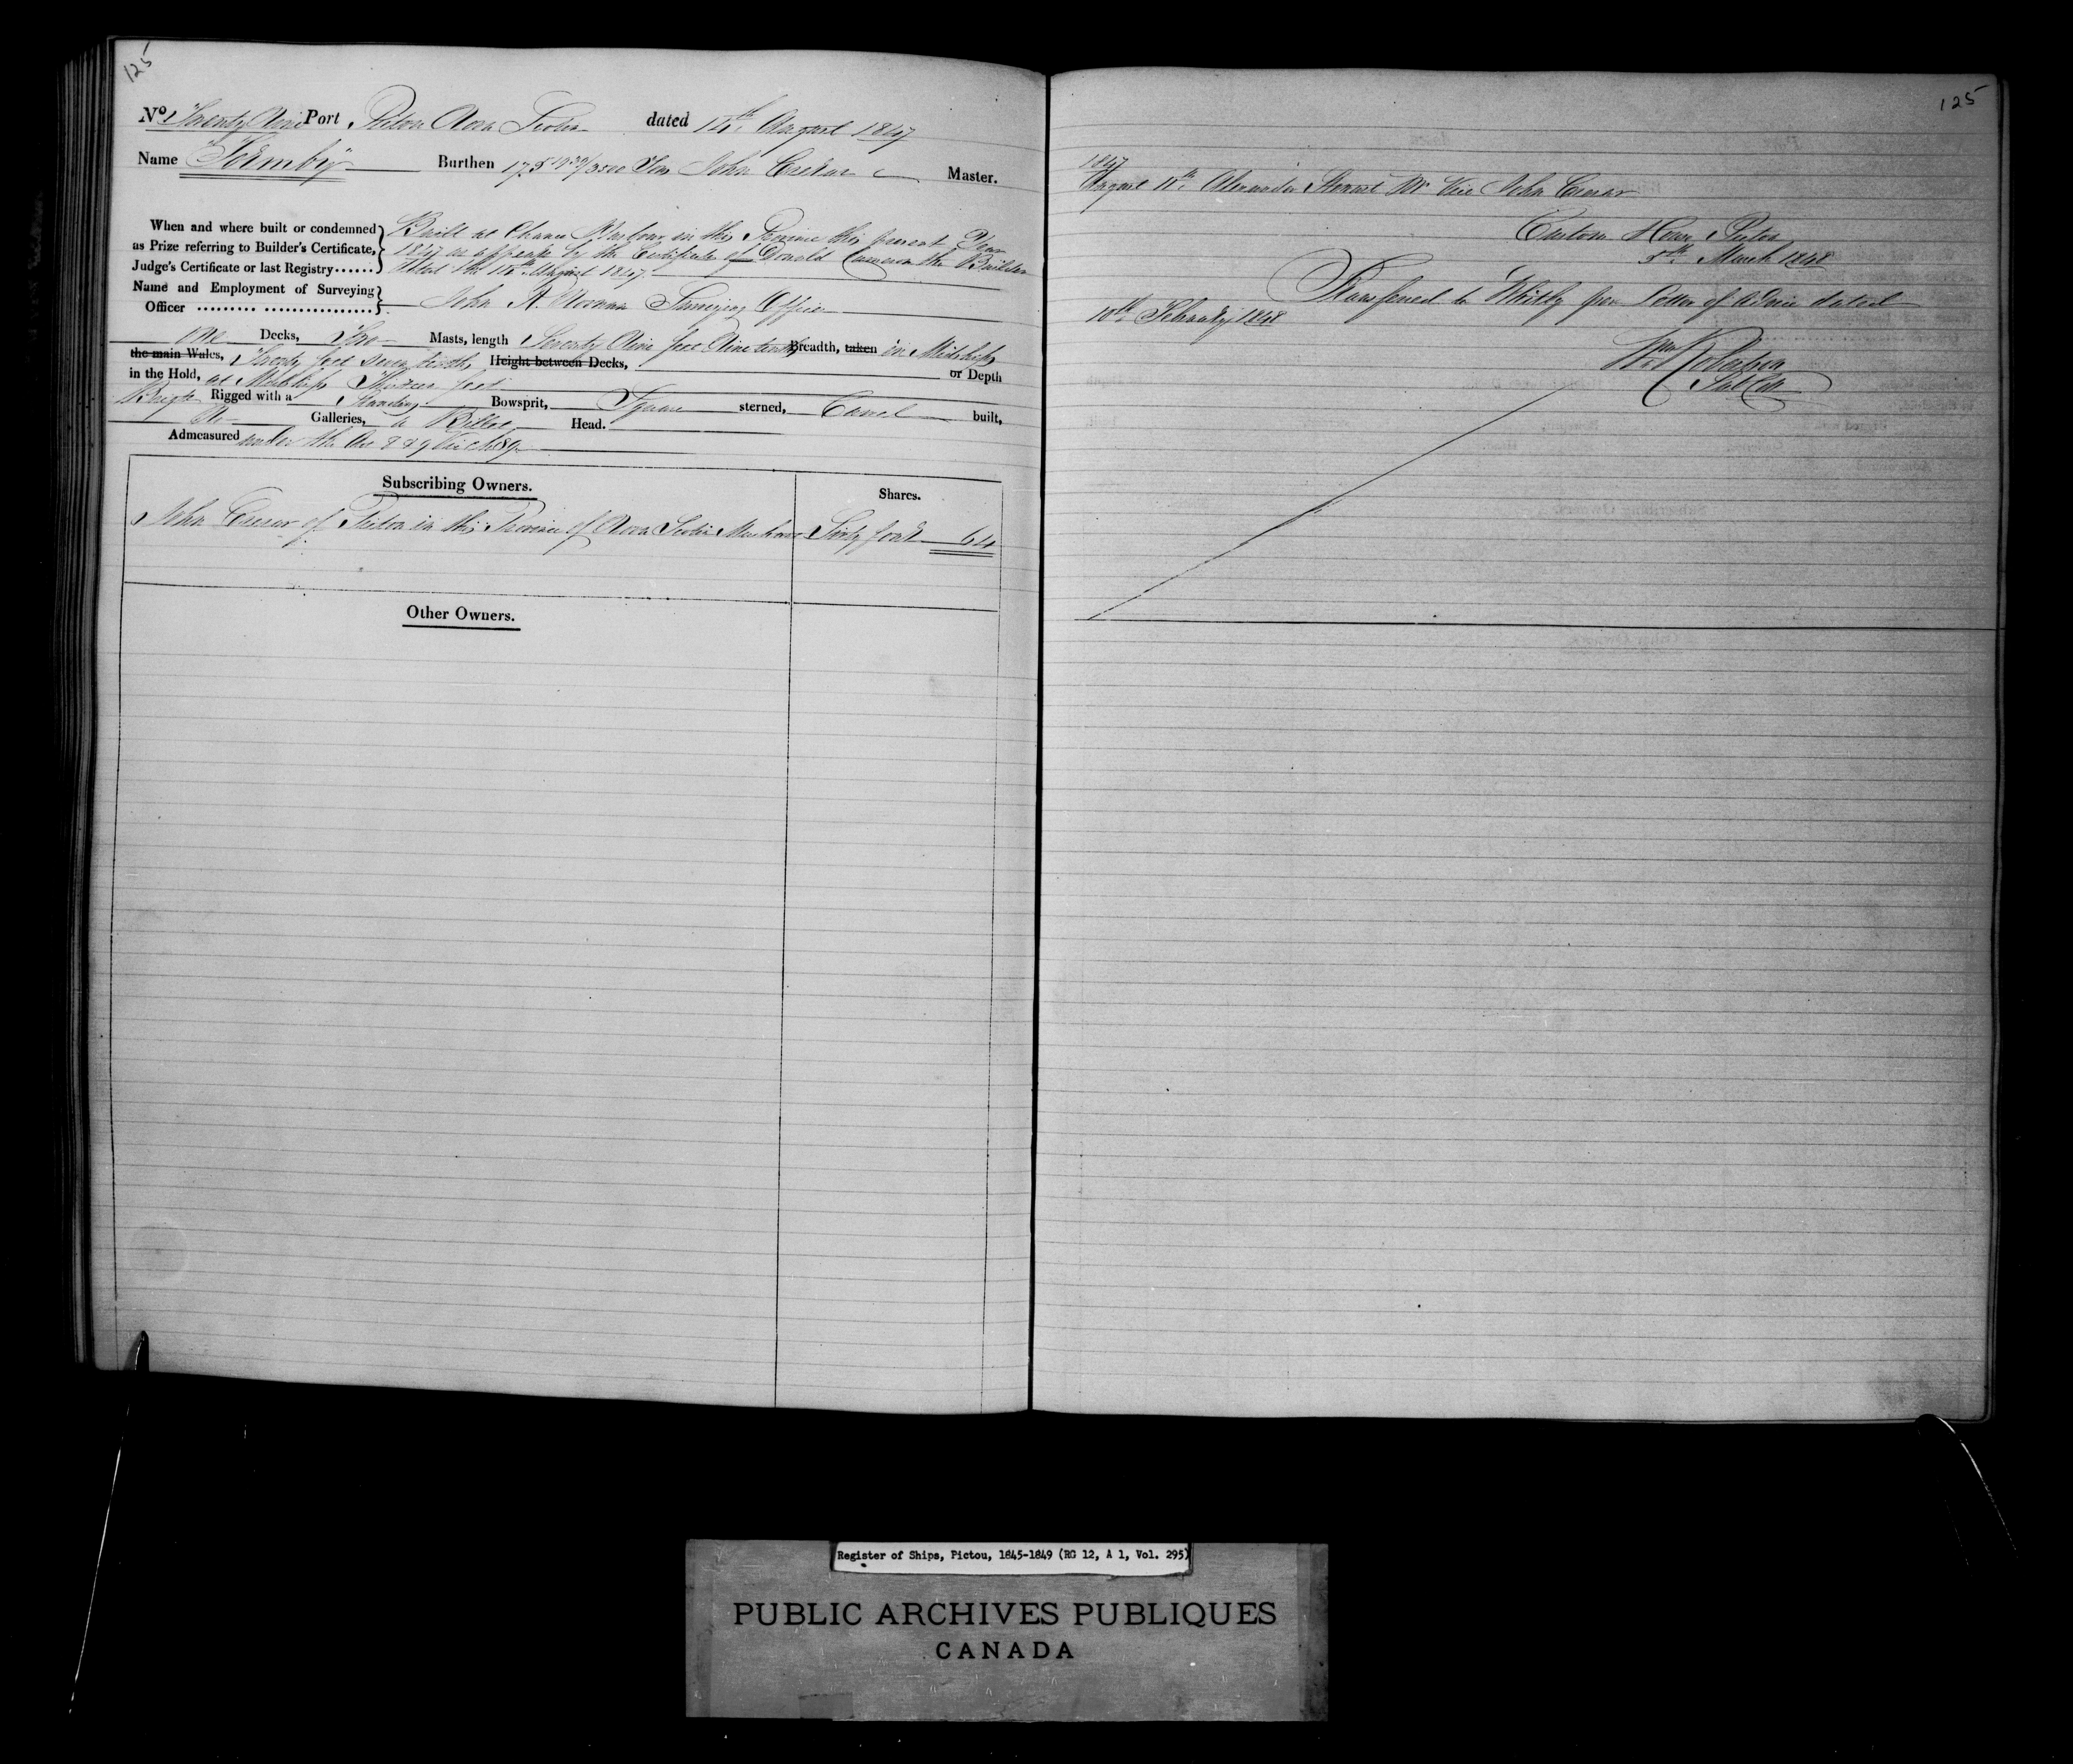 125
No. Twenty Nine Port Pictou Nova Scotia dated 14th August 1847
Name "Formby" Burthen 175 /3500 Tons John Master.
When and where built or condemned as Prize referring to Builder's Certificate, Judge's Certificate or last Registry...... Built at Chance Harbour in this Province this present Year
1847 as appears by the Certificate of Donald Cameron the Builder
dated the August 1847
Name and Employment of Surveying Officer John A. Surveying Officer
One Decks, Two Masts, length Seventy Nine feet Nine tenths Breadth, taken in Midships
the main Wales, Twenty feet Seven tenths Height between Decks, or Depth
in the Hold, at Midships feet
Brigt Rigged with a Standing Bowsprit, Square sterned, Carvel built,
No Galleries, a Billet Head.
Admeasured under the Act 8 & 9 Vic c. 89
Subscribing Owners. Shares.
John of Pictou in this Province of Nova Scotia Sixty four 64
Other Owners.
125
1847
August Alexander Stewart Mr Vice John
Custom House Pictou
March 1848
Transferred to Whitby per Letter of Advice dated
10th February 1848
Wm Robertson
Register of Ships, Pictou, 1845-1849 (RG 12, A 1, Vol. 295)
PUBLIC ARCHIVES PUBLIQUES
CANADA